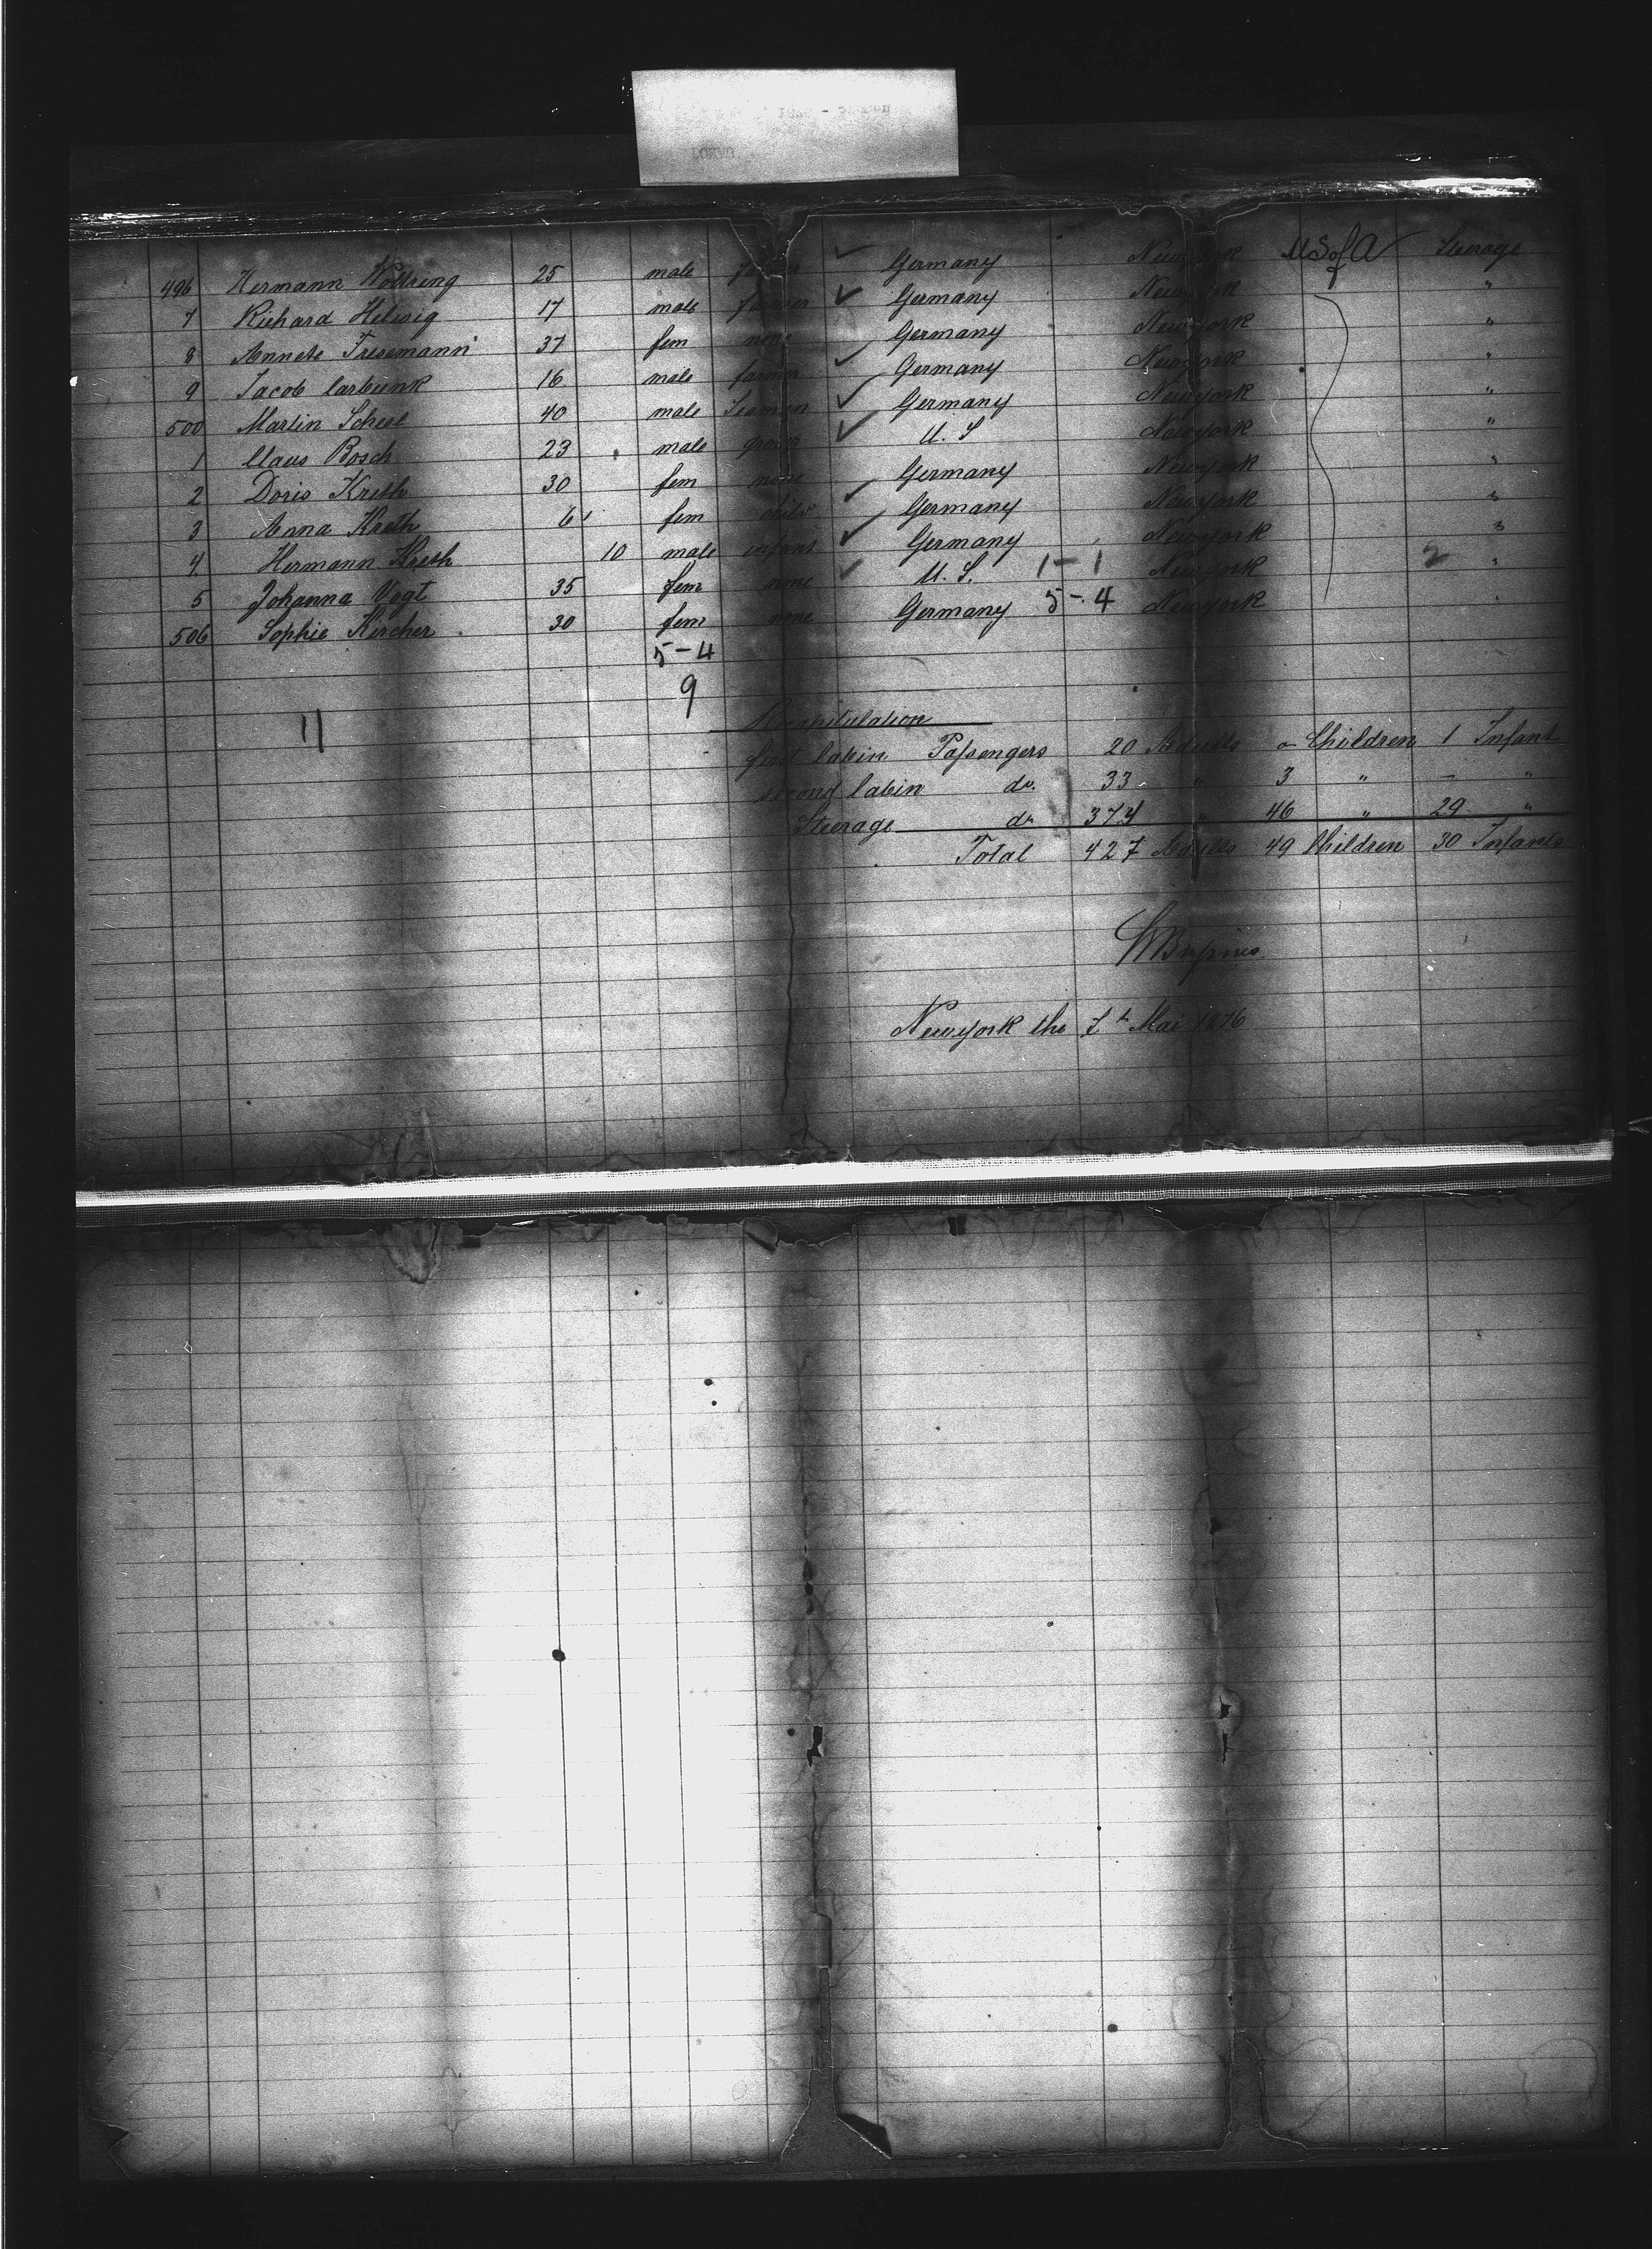 496 Hermann Woltring 25 male Germany Newyork USofA Steerage
7 Richard Helwig 17 male farmer Germany Newyork "
8 Annete Tresemann 37 fem none Germany Newyork "
9 Jacob Carbunk 16 male farmer Germany Newyork "
500 Martin Scheel 40 male Seaman Germany Newyork "
1 Claus Bosch 23 male grocer U. S Newyork "
2 Doris Kreth 30 fem none Germany Newyork "
3 Anna Kreth 6 fem child Germany Newyork "
4 Hermann Kreth 10 male infant Germany Newyork "
5 Johanna Vogt 35 fem none U. S. 1-1 Newyork 2 "
506 Sophie Kircher 30 fem none Germany 5-4 Newyork "
5-4
9
11
Recapitulation
first Cabin Passengers 20 Adults o Children 1 Infant
second Cabin do. 33 " 3 " - "
Steerage do 374 " 46 " 29 "
Total 427 Adults 49 Children 30 Infants
Newyork the 7th Mai 1876